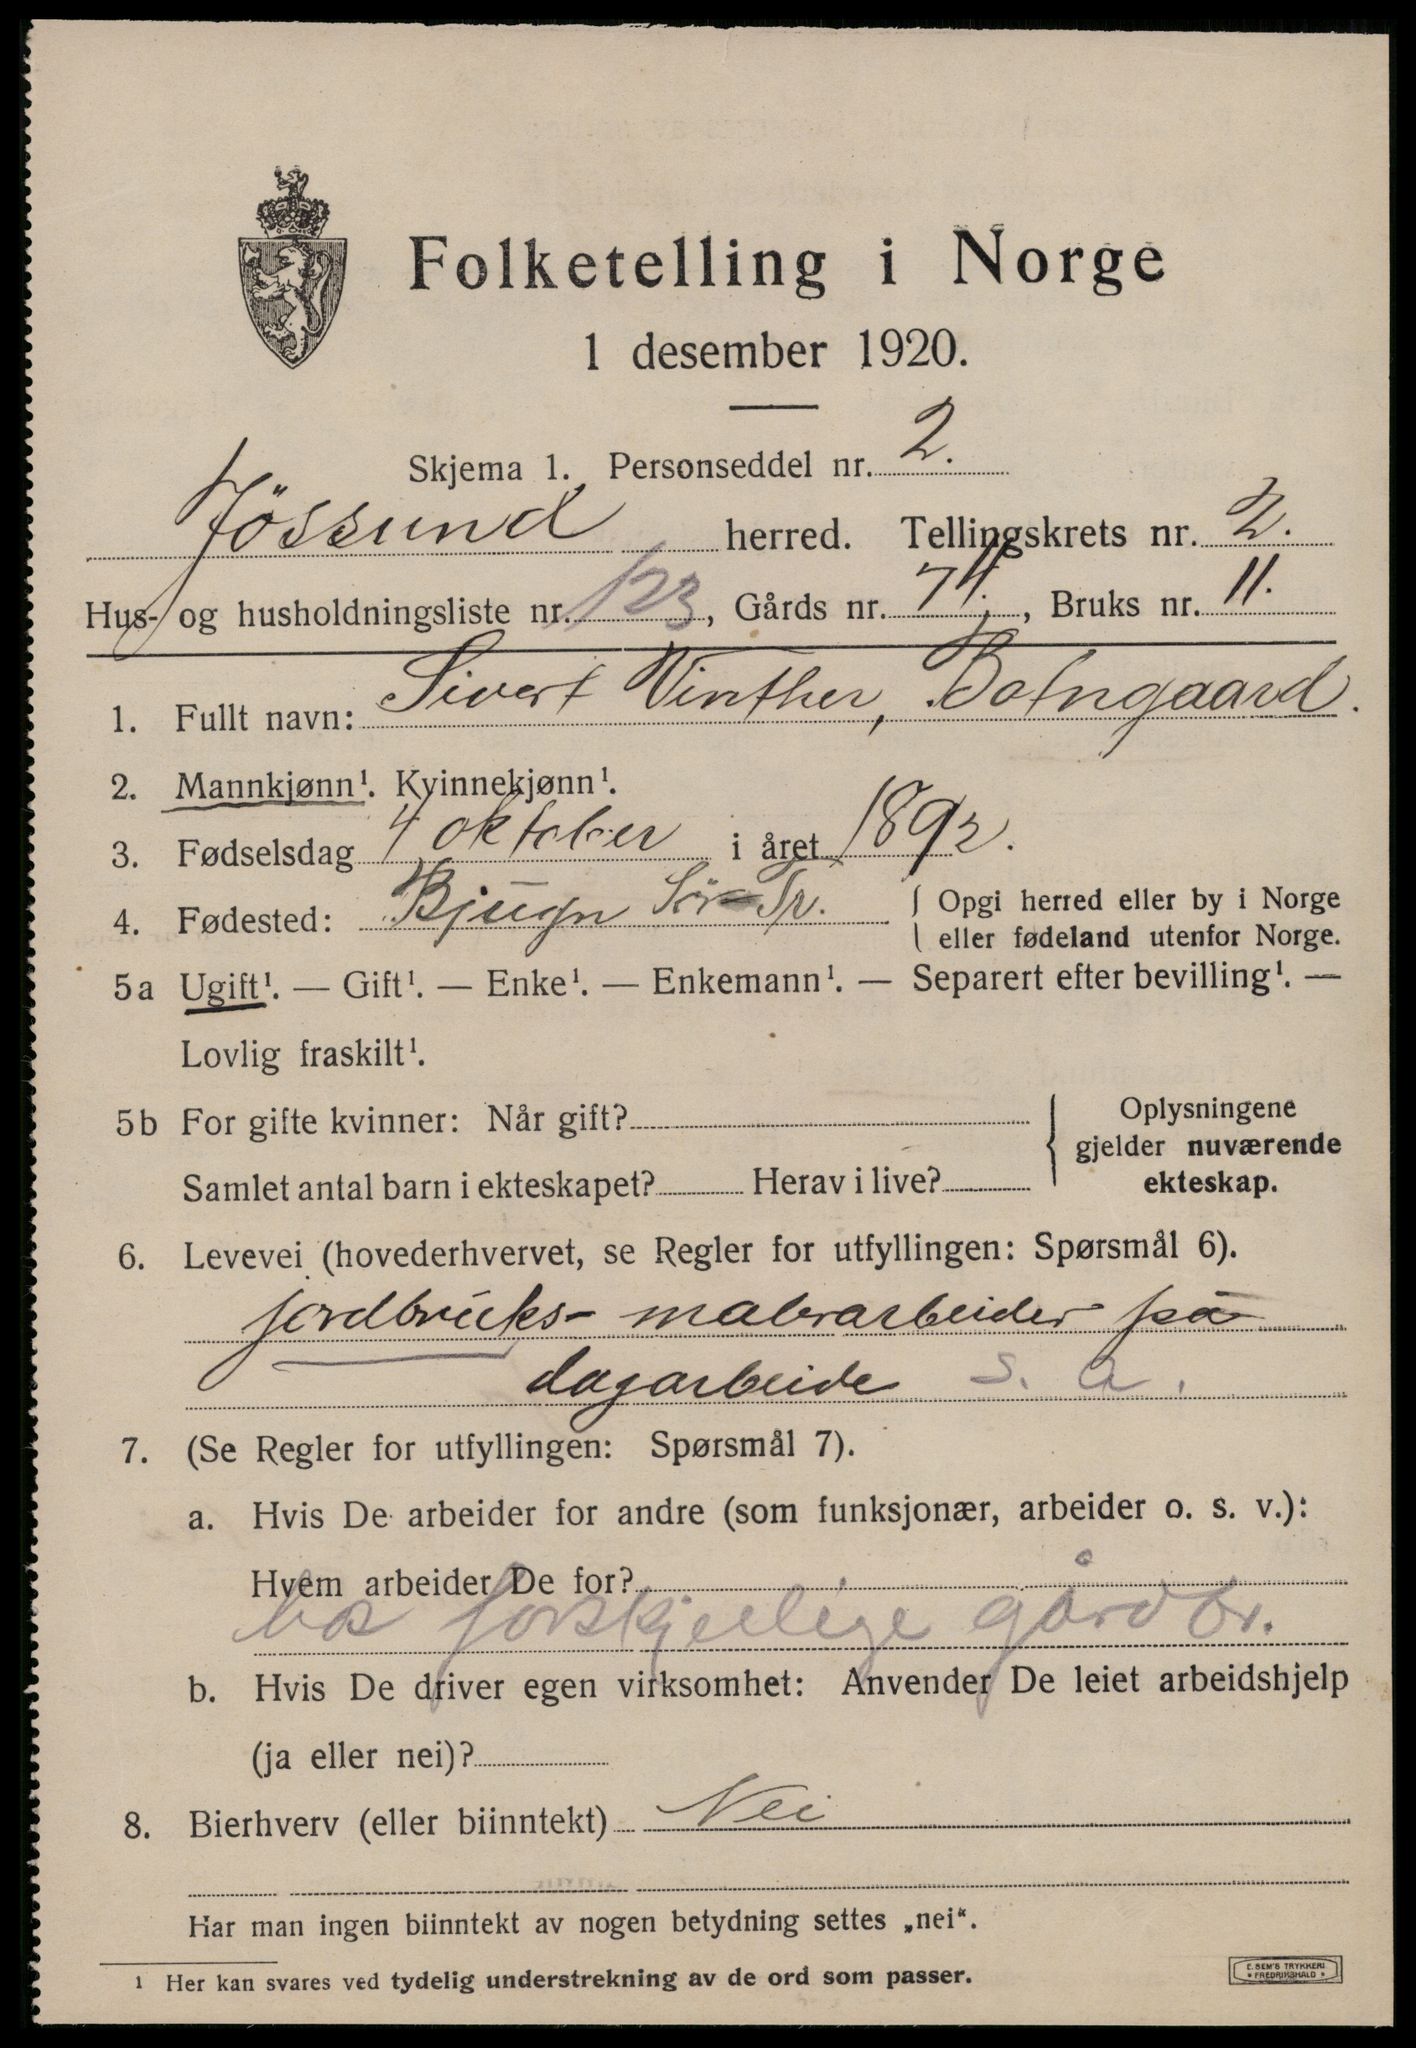 Folketelling i Norge
1 desember 1920.
Skjema 1. Personseddel nr. 2.
Jössund herred. Tellingskrets nr. 2.
Hus- og husholdningsliste nr. 123, Gårds nr. 74, Bruks nr. 11.
1. Fullt navn: Sivert Vinther, Botngaard.
2. Mannkjønn¹. Kvinnekjønn¹.
3. Fødselsdag 4 oktober i året 1892.
4. Fødested: Bjugn Sör-Tr. { Opgi herred eller by i Norge
eller fødeland utenfor Norge.
5a Ugift¹. — Gift¹. — Enke¹. — Enkemann¹. — Separert efter bevilling¹. —
Lovlig fraskilt¹.
5b For gifte kvinner: Når gift?
Samlet antal barn i ekteskapet? Herav i live?
Oplysningene
gjelder nuværende
ekteskap.
6. Levevei (hovederhvervet, se Regler for utfyllingen: Spørsmål 6).
jordbruks- malerarbeider på
dagarbeide s. a.
7. (Se Regler for utfyllingen: Spørsmål 7).
a. Hvis De arbeider for andre (som funksjonær, arbeider o. s. v.):
Hvem arbeider De for?
hos forskjellige gårdbr.
b. Hvis De driver egen virksomhet: Anvender De leiet arbeidshjelp
(ja eller nei)?
8. Bierhverv (eller biinntekt) Nei
Har man ingen biinntekt av nogen betydning settes „nei“.
¹ Her kan svares ved tydelig understrekning av de ord som passer.
E. SEM'S TRYKKERI
* FREDRIKSHALD *